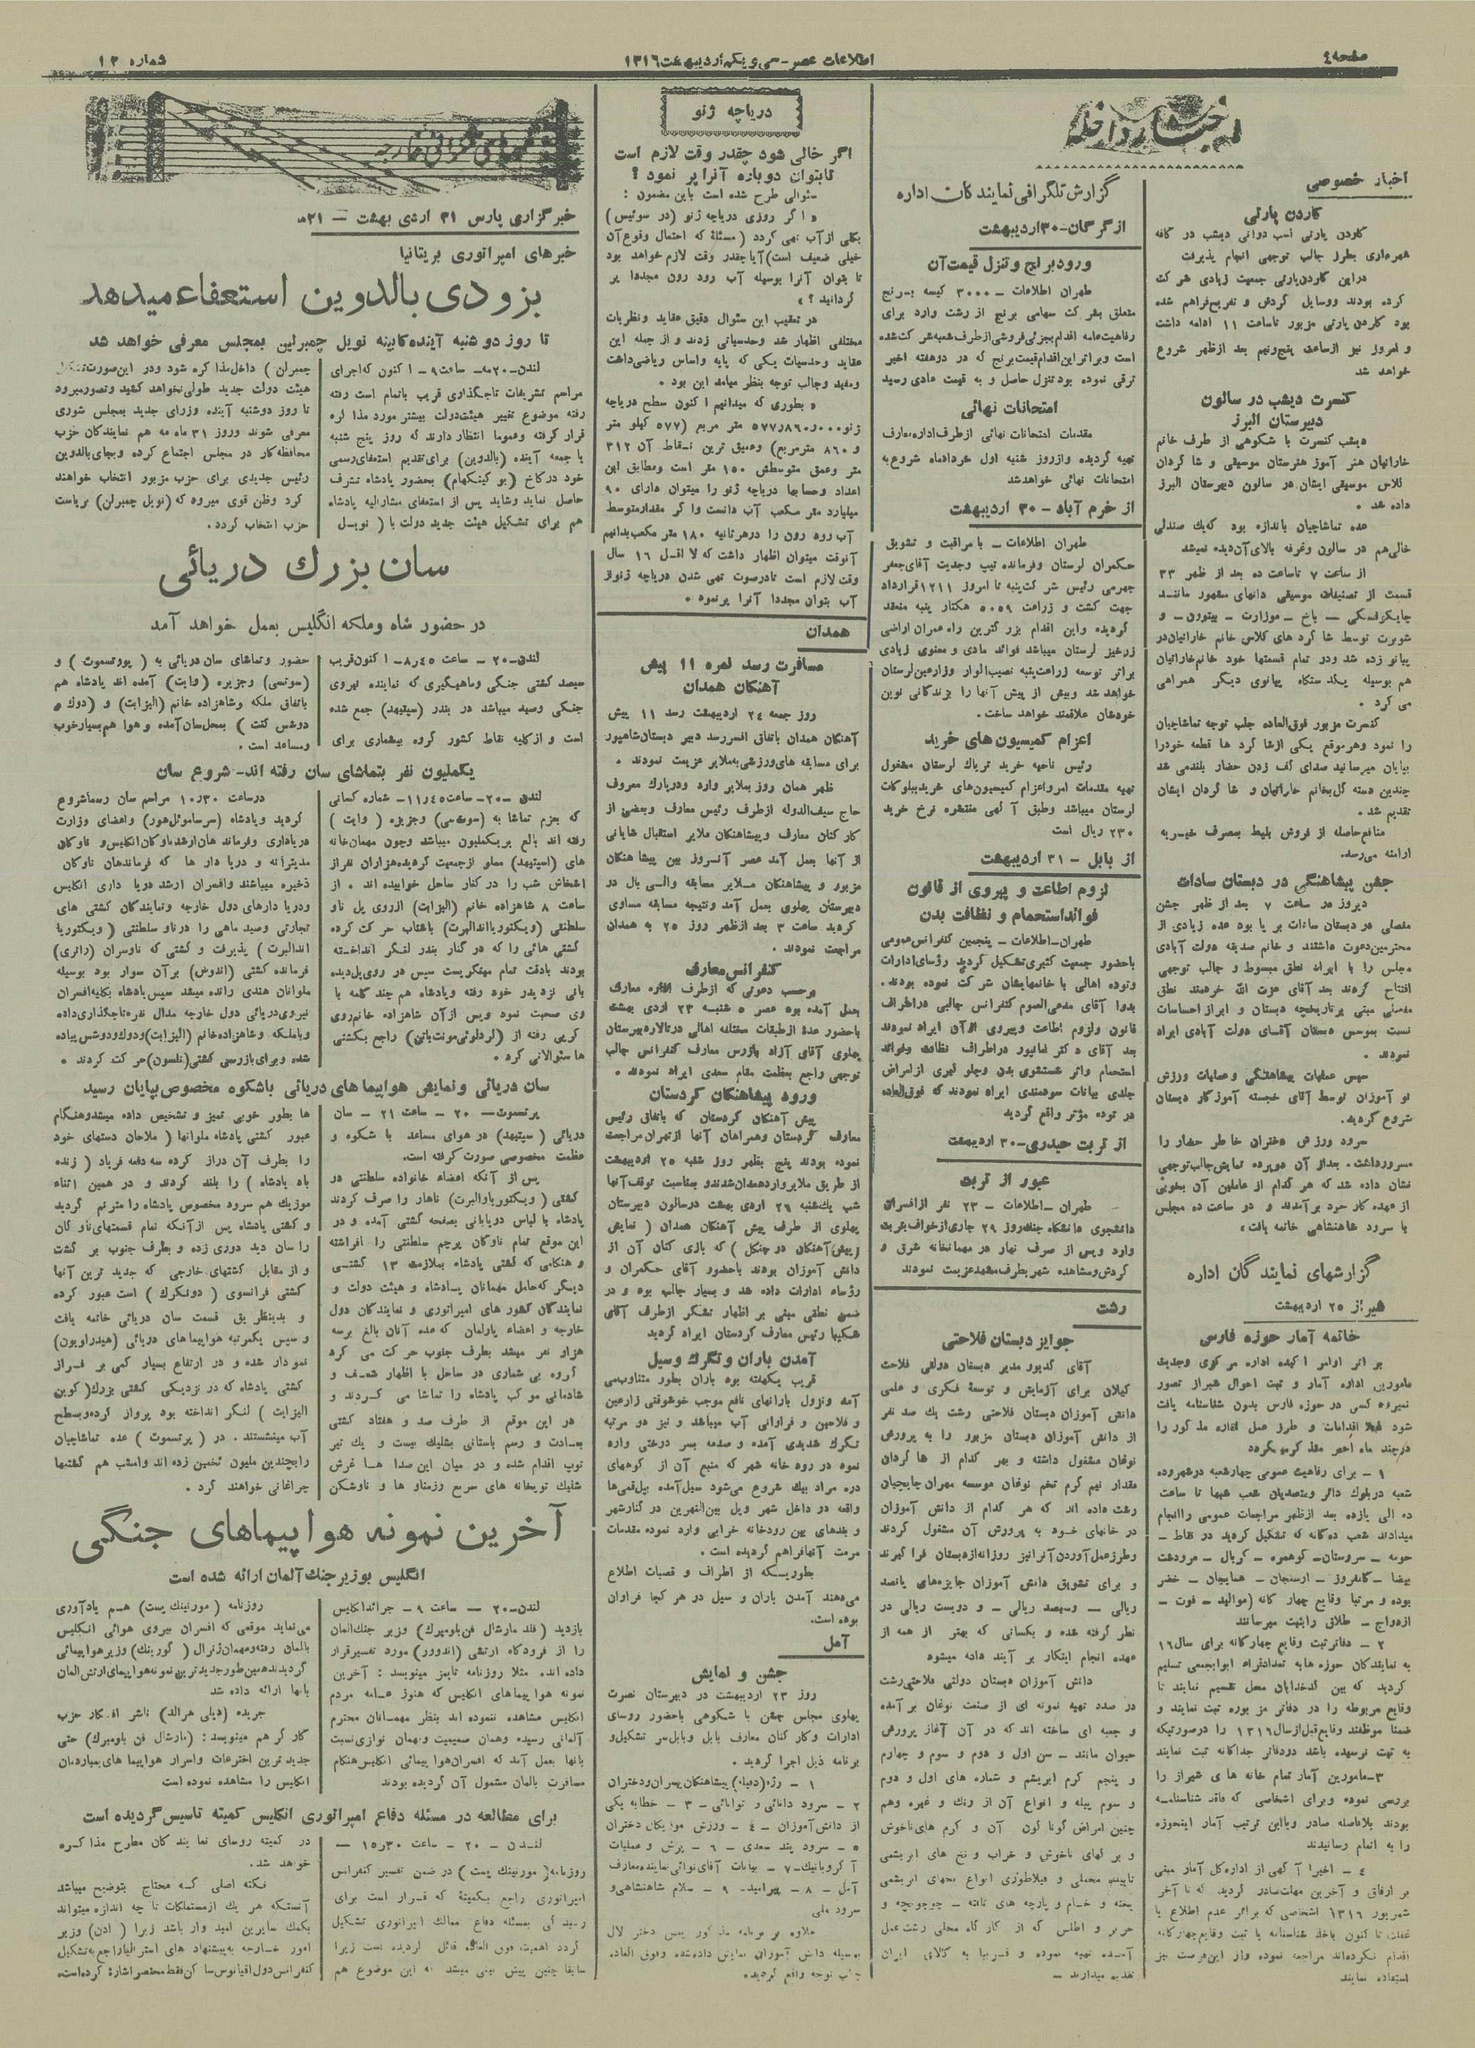 صفحه٤
اطلاعات عصر - سی و یکم اردیبهشت ۱۳۱۶
اخبار داخله
اخبار خصوصی
گاردن پارتی
گاردن پارتی اسب دوانی دیشب در کافه
شهرداری بطرز جالب توجهی انجام پذیرفت
در این گاردن پارتی جمعیت زیادی شرکت
کرده بودند و وسایل گردش و تفریح فراهم شده
بود گاردن پارتی مزبور تا ساعت ۱۱ ادامه داشت
و امروز نیز از ساعت پنج و نیم بعد از ظهر شروع
خواهد شد
کنسرت دیشب در سالون
دبیرستان البرز
دیشب کنسرت با شکوهی از طرف خانم
خاراتیان هنر آموز هنرستان موسیقی و شاگردان
کلاس موسیقی ایشان در سالون دبیرستان البرز
داده شد .
عده تماشاچیان باندازه بود که یک صندلی
خالی هم در سالون و غرفه بالای آن دیده نمیشد
از ساعت ۷ تا ساعت ده بعد از ظهر ۳۳
قسمت از تصنیفات موسیقی دانهای مشهور مانند
چایکوفسکی - باخ - موزارت - بیتون - و
شوبرت توسط شاگردهای کلاس خانم خاراتیان در
پیانو زده شد و در تمام قسمتها خود خانم خاراتیان
هم بوسیله یک دستگاه پیانوی دیگر همراهی
می کرد .
کنسرت مزبور فوق العاده جلب توجه تماشاچیان
را نمود و هر موقع یکی از شاگردها قطعه خود را
بپایان میرسانید صدای کف زدن حضار بلند می شد
چندین دسته گل بخانم خاراتیان و شاگردان ایشان
تقدیم شد .
منافع حاصله از فروش بلیط بمصرف خیریه
ارامنه می‌رسد.
جشن پیشاهنگی در دبستان سادات
دیروز در ساعت ۷ بعد از ظهر جشن
مفصلی در دبستان سادات بر پا بود عده زیادی از
محترمین دعوت داشتند و خانم صدیقه دولت آبادی
مجلس را با ایراد نطق مبسوط و جالب توجهی
افتتاح کردند بعد آقای عزت الله خردمند نطق
مفصلی مبنی بر تاریخچه دبستان و ابراز احساسات
نسبت بموسس دبستان آقای دولت آبادی ایراد
نمودند .
سپس عملیات پیشاهنگی و عملیات ورزش
نو آموزان توسط آقای خجسته آموزگار دبستان
شروع گردید.
سرود ورزش دختران خاطر حضار را
مسرور داشت. بعد از آن دو پرده نمایش جالب توجهی
نشان داده شد که هر کدام از عاملین آن بخوبی
از عهده کار خود برآمدند و در ساعت ده مجلس
با سرود شاهنشاهی خاتمه یافت؛
گزارشهای نمایندگان اداره
شیراز ۲۵ اردیبهشت
خاتمه آمار حوزه فارس
بر اثر اوامر اکیده اداره مرکزی و جدیت
مامورین اداره آمار و ثبت احوال شیراز تصور
نمیرود کسی در حوزه فارس بدون شناسنامه یافت
شود فعلا اقدامات و طرز عمل اداره مذکور را
در چند ماه اخیر متذکر میگردد
۱ - برای رفاهیت عمومی چهار شعبه در شهر و ده
شعبه در بلوک دائر و متصدیان شعب شبها تا ساعت
ده الی یازده بعد از ظهر مراجعات عمومی را انجام
میدادند شعب ده گانه که تشکیل گردید در نقاط -
حومه - سروستان - کوهمره - کربال - مرودشت
بیضا - کامفیروز - ارسنجان - همایجان - خفر
بوده و مرتبا وقایع چهار گانه (موالید - فوت -
ازدواج - طلاق را بثبت میرسانند
۲ - دفاتر ثبت وقایع چهارگانه برای سال ۱۶
به نمایندگان حوزه ها به تعداد قراء ابوابجمعی تسلیم
گردید که بین کدخدایان محل تقسیم نمایند تا
وقایع مربوطه را در دفاتر مزبوره ثبت نمایند و
ضمنا موظفند وقایع قبل از سال ۱۳۱۶ را در صورتیکه
به ثبت نرسیده باشد در دفاتر جداگانه ثبت نمایند
۳- مامورین آمار تمام خانه های شیراز را
بررسی نموده و برای اشخاصی که فاقد شناسنامه
بودند بلافاصله صادر و باین ترتیب آمار این حوزه
را به اتمام رسانیدند
٤ - اخیرا آگهی از اداره کل آمار مبنی
بر ارفاق و آخرین مهلت صادر گردید که تا آخر
شهریور ۱۳۱۶ اشخاصی که بر اثر عدم اطلاع یا
غفلت تا کنون باخذ شناسنامه یا ثبت وقایع چهارگانه
اقدام نکرده‌اند مراجعه نموده و از این فرصت نیز
استفاده نمایند
گزارش تلگرافی نمایندگان اداره
از گرگان - ۳۰ اردیبهشت
ورود برنج و تنزل قیمت آن
طهران اطلاعات - ۳۰۰۰ کیسه برنج
متعلق بشرکت سهامی برنج از رشت وارد برای
رفاهیت عامه اقدام بجزئی فروشی از طرف شعبه شرکت شده
است و بر اثر این اقدام قیمت برنج که در دو هفته اخیر
ترقی نموده بود تنزل حاصل و به قیمت عادی رسید
امتحانات نهائی
مقدمات امتحانات نهائی از طرف اداره معارف
تهیه گردیده و از روز شنبه اول خردادماه شروع به
امتحانات نهائی خواهد شد
از خرم آباد - ۳۰ اردیبهشت
طهران اطلاعات - با مراقبت و تشویق
حکمران لرستان و فرمانده تیپ و جدیت آقای جعفر
جهرمی رئیس شرکت پنبه تا امروز ۱۲۱۱ قرارداد
جهت کشت و زراعت ۵۰۵۹ هکتار پنبه منعقد
گردیده و این اقدام بزرگترین راه عمران اراضی
زرخیز لرستان میباشد فوائد مادی و معنوی زیادی
بر اثر توسعه زراعت پنبه نصیب الوار و زارعین لرستان
خواهد شد و بیش از پیش آنها را بزندگانی نوین
خودشان علاقمند خواهد ساخت .
اعزام کمیسیون های خرید
رئیس ناحیه خرید تریاک لرستان مشغول
تهیه مقدمات امر و اعزام کمیسیون های خرید ببلوکات
لرستان میباشد و طبق آگهی منتشره نرخ خرید
۲۳۰ ریال است
از بابل - ۳۱ اردیبهشت
لزوم اطاعت و پیروی از قانون
فوائد استحمام و نظافت بدن
طهران - اطلاعات - پنجمین کنفرانس عمومی
با حضور جمعیت کثیری تشکیل گردید رؤسای ادارات
و توده اهالی با خانمهایشان شرکت نموده بودند .
بدوا آقای مدعی العموم کنفرانس جالبی در اطراف
قانون و لزوم اطاعت و پیروی از آن ایراد نمودند
بعد آقای دکتر نمانپور در اطراف نظافت و فوائد
استحمام و اثر شستشوی بدن و جلوگیری از امراض
جلدی بیانات سودمندی ایراد نمودند که فوق العاده
در توده مؤثر واقع گردید
از تربت حیدری - ۳۰ اردیبهشت
عبور از تربت
طهران - اطلاعات - ۲۳ نفر از افسران
دانشجوی دانشگاه جنگ روز ۲۹ جاری از خواف بتربت
وارد و پس از صرف نهار در مهمانخانه شرق و
گردش و مشاهده شهر بطرف مشهد عزیمت نمودند
رشت
جوایز دبستان فلاحتی
آقای کدیور مدیر دبستان دولتی فلاحت
گیلان برای آزمایش و توسعه فکری و علمی
دانش آموزان دبستان فلاحتی رشت یک صد نفر
از دانش آموزان دبستان مزبور را به پرورش
نوغان مشغول داشته و بهر کدام از شاگردان
مقدار نیم گرم تخم نوغان موسسه مهران چایچیان
رشت داده اند که هر کدام از دانش آموزان
در خانهای خود به پرورش آن مشغول گردند
و طرز عمل آوردن آنرا نیز روزانه از دبستان فرا گیرند
و برای تشویق دانش آموزان جایزه‌های پانصد
ریالی - و سیصد ریالی - و دویست ریالی در
نظر گرفته شده و بکسانی که بهتر از همه از
عهده انجام اینکار بر آیند داده میشود
دانش آموزان دبستان دولتی فلاحتی رشت
در صدد تهیه نمونه ای از صنعت نوغان برآمده
و جعبه ای ساخته اند که در آن آغاز پرورش
حیوان مانند - سن اول و دوم و سوم و چهارم
و پنجم کرم ابریشم و شماره های اول و دوم
و سوم پیله و انواع آن از رنگ و غیره وهم
چنین امراض گوناگون آن و کرم های ناخوش
و برگهای ناخوش و خراب و نخ های ابریشمی
پخته و خام و پارچه های بافته - چوچونچه و
حریر و اطلس که از کارگاه محلی رشت بعمل
دریاچه ژنو
اگر خالی شود چقدر وقت لازم است
تابتوان دوباره آنرا پر نمود ؟
سئوالی طرح شده است باین مضمون :
« اگر روزی دریاچه ژنو (در سوئیس)
بکلی از آب تهی گردد (مسئلهٔ که احتمال وقوع آن
خیلی ضعیف است) آیا چقدر وقت لازم خواهد بود
تا بتوان آنرا بوسیله آب رود رون مجددا پر
گردانید ؟ »
در تعقیب این سئوال دقیق عقاید و نظریات
مختلفی اظهار شد و حدسیاتی زدند و از جمله این
عقاید و حدسیات یکی که پایه و اساس ریاضی داشت
و مفید و جالب توجه بنظر میامد این بود .
« بطوری که میدانیم اکنون سطح دریاچه
ژنو ۵۷۷٫۸۶۰٫۰۰۰ متر مربع (۵۷۷ کیلو متر
و ۸۶۰ متر مربع) و عمیق ترین نقاط آن ۳۱۲
متر و عمق متوسطش ۱۵۰ متر است و مطابق این
اعداد و حسابها دریاچه ژنو را میتوان دارای ۹۰
میلیارد متر مکعب آب دانست و اگر مقدار متوسط
آب رود رون را در هر ثانیه ۱۸۰ متر مکعب بدانیم
آنوقت میتوان اظهار داشت که لااقل ۱۶ سال
وقت لازم است تا در صورت تهی شدن دریاچه ژنو از
آب بتوان مجددا آنرا پر نمود .
همدان
مسافرت رسد نمره ۱۱ پیش
آهنگان همدان
روز جمعه ۲٤ اردیبهشت رسد ۱۱ پیش
آهنگان همدان باتفاق افسر رسد دبیر دبستان شاهپور
برای مسابقه های ورزشی به ملایر عزیمت نمودند .
ظهر همان روز بملایر وارد و در پارک معروف
حاج سیف الدوله از طرف رئیس معارف و بعضی از
کارکنان معارف و پیشاهنگان ملایر استقبال شایانی
از آنها بعمل آمد عصر آنروز بین پیشاهنگان
مزبور و پیشاهنگان ملایر مسابقه والی بال در
دبیرستان پهلوی بعمل آمد و نتیجه مسابقه مساوی
گردید ساعت ۳ بعد از ظهر روز ۲۵ به همدان
مراجعت نمودند.
کنفرانس معارف
برحسب دعوتی که از طرف اداره معارف
بعمل آمده بود عصر ۵ شنبه ۲۳ اردی بهشت
با حضور عدهٔ از طبقات مختلفه اهالی در تالار دبیرستان
پهلوی آقای آزاد بازرس معارف کنفرانس جالب
توجهی راجع بعظمت مقام سعدی ایراد نمودند .
ورود پیشاهنگان کردستان
پیش آهنگان کردستان که باتفاق رئیس
معارف کردستان و همراهان آنها از تهران مراجعت
نموده بودند پنج بظهر روز شنبه ۲۵ اردیبهشت
از طریق ملایر وارد همدان شدند و بمناسبت توقف آنها
شب یکشنبه ۲۶ اردی بهشت در سالون دبیرستان
پهلوی از طرف پیش آهنگان همدان ( نمایشی
(پیش آهنگان در جنگل) که بازی کنان آن از
دانش آموزان بودند با حضور آقای حکمران و
رؤساء ادارات داده شد و بسیار جالب بود و در
ضمن نطقی مبنی بر اظهار تشکر از طرف آقای
شکیبا رئیس معارف کردستان ایراد گردید
آمدن باران و تگرگ و سیل
قریب یکهفته بود باران بطور متناوب می
آمد و نزول بارانهای نافع موجب خوشوقتی زارعین
و فلاحین و فراوانی آب میباشد و نیز دو مرتبه
تگرگ شدیدی آمده و صدمه بسر درختی وارد
نمود در رود خانه شهر که منبع آن از کوههای
دره مراد بیک شروع می‌شود سیل آمده بپل قمی‌ها
واقعه در داخل شهر و پل بین النهرین در کنار شهر
و بندهای بین رودخانه خرابی وارد نموده مقدمات
مرمت آنها فراهم گردیده است .
بطوریکه از اطراف و قصبات اطلاع
می‌دهند آمدن باران و سیل در هر کجا فراوان
بوده است.
آمل
جشن و نمایش
روز ۲۳ اردیبهشت در دبیرستان نصرت
پهلوی مجلس جشن با شکوهی با حضور روسای
ادارات و کارکنان معارف بابل و بابلسر تشکیل و
برنامه ذیل اجرا گردید .
۱ - رژه (دفیله) پیشاهنگان پسران و دختران
۲ - سرود دانائی و توانائی - ۳ - خطابه یکی
از دانش آموزان - ٤ - ورزش موزیکال دختران
۵ - سرود پند سعدی - ۶ - پرش و عملیات
آکروباتیک - ۷ - بیانات آقای نوائی نماینده معارف
آمل - ۸ - پیرامید - ۹ - سلام شاهنشاهی و
سرود ملی
علاوه بر برنامه مذکور پیس دختر لال
بوسیله دانش آموزان نمایش داده شد و فوق العاده
جالب توجه واقع گردید.
خبرگزاری پارس ۳۱ اردی بهشت - ۲۱ مه
خبرهای امپراتوری بریتانیا
بزودی بالدوین استعفاء میدهد
تا روز دو شنبه آینده کابینه نویل چمبرلین بمجلس معرفی خواهد شد
لندن - ۲۰ مه - ساعت ۹ - اکنون که اجرای
مراسم تشریفات تاجگذاری قریب باتمام است رفته
رفته موضوع تغییر هیئت دولت بیشتر مورد مذاکره
قرار گرفته و عموما انتظار دارند که روز پنج شنبه
یا جمعه آینده (بالدوین) برای تقدیم استعفای رسمی
خود در کاخ (بوکینگهام) بحضور پادشاه تشرف
حاصل نماید و شاید پس از استعفای مشارالیه پادشاه
هم برای تشکیل هیئت جدید دولت با ( نویل
چمبرلن ) داخل مذاکره شود و در این صورت تشکیل
هیئت دولت جدید طولی نخواهد کشید و تصور میرود
تا روز دوشنبه آینده وزرای جدید بمجلس شوری
معرفی شوند و روز ۳۱ ماه مه هم نمایندگان حزب
محافظه کار در مجلس اجتماع کرده و بجای بالدوین
رئیس جدیدی برای حزب مزبور انتخاب خواهند
کرد و ظن قوی میرود که (نویل چمبرلن) بریاست
حزب انتخاب گردد.
سان بزرگ دریائی
در حضور شاه و ملکه انگلیس بعمل خواهد آمد
لندن - ۲۰ - ساعت ۸٫٤۵ - اکنون قریب
سیصد کشتی جنگی و ماهیگیری که نماینده نیروی
جنگی و صید میباشد در بندر (سپتهید) جمع شده
است و از کلیه نقاط کشور گروه بیشماری برای
حضور و تماشای سان دریائی به ( پورتسموث ) و
(سوتسی) و جزیره (وایت) آمده اند پادشاه هم
باتفاق ملکه و شاهزاده خانم (الیزابت) و (دوک و
دوشس کنت ) بمحل سان آمده و هوا هم بسیار خوب
و مساعد است .
یکملیون نفر بتماشای سان رفته اند - شروع سان
لندن - ۲۰ - ساعت ۱۱٫٤۵ - شماره کسانی
که بعزم تماشا به (سوتسی) و جزیره ( وایت )
رفته اند بالغ بر یکملیون میباشد و چون مهمان خانه
های (اسپتهید) مملو از جمعیت گردیده هزاران نفر از
اشخاص شب را در کنار ساحل خوابیده اند . از
ساعت ۸ شاهزاده خانم (الیزابت) از روی پل ناو
سلطنتی (ویکتوریا اندالبرت) باشتاب حرکت کرده
کشتی هائی را که در کنار بندر لنگر انداخته
بودند بادقت تمام مینگریست سپس در روی پل دیده
بانی نزد پدر خود رفته و پادشاه هم چند کلمه با
وی صحبت نمود و پس از آن شاهزاده خانم روی
کرپی رفته از (لرد لوئی مونت باتن) راجع بکشتی
ها سئوالاتی کرد .
در ساعت ۱۰٫۳۰ مراسم سان رسما شروع
گردید و پادشاه (سر ساموئل هور) و اعضای وزارت
دریاداری و فرماندهان ارشد ناوگان انگلیس و ناوگان
مدیترانه و دریادارها که فرماندهان ناوگان
ذخیره میباشند و افسران ارشد دریا داری انگلیس
و دریا دارهای دول خارجه و نمایندگان کشتی های
تجارتی و صید ماهی را در ناو سلطنتی (ویکتوریا
اندالبرت ) پذیرفت و کشتی که ناوسران (راتری)
فرمانده کشتی (اندوش) بر آن سوار بود بوسیله
ملوانان هندی رانده میشد سپس پادشاه بکلیه افسران
نیروی دریائی دول خارجه مدال نقره تاجگذاری داده
و با ملکه و شاهزاده خانم (الیزابت) و دوک و دوشس پیاده
شده و برای بازرسی کشتی (نلسون) حرکت کردند .
سان دریائی و نمایش هواپیماهای دریائی باشکوه مخصوص بپایان رسید
پرتسموت - ۲۰ - ساعت ۲۱ - سان
دریائی ( سپتهید) در هوای مساعد با شکوه و
عظمت مخصوصی صورت گرفته است.
پس از آنکه اعضاء خانواده سلطنتی در
کشتی (ویکتوریا و البرت) ناهار را صرف کردند
پادشاه با لباس دریابانی بصفحه کشتی آمده و در
این موقع تمام ناوگان پرچم سلطنتی را افراشته
و هنگامی که کشتی پادشاه بملازمت ۱۳ کشتی
دیگر که حامل مهمانان پادشاه و هیئت دولت و
نمایندگان کشور های امپراتوری و نمایندگان دول
خارجه و اعضاء پارلمان که عده آنان بالغ بر سه
هزار نفر میشد بطرف جنوب حرکت می کرد
گروه بی شماری در ساحل با اظهار شعف و
شادمانی موکب پادشاه را تماشا می کردند و
در این موقع از طرف صد و هفتاد کشتی
بعادت و رسم باستانی بشلیک بیست و یک تیر
توپ اقدام شده و در میان این صدا ها غرش
شلیک توپخانه های سریع رزمناو ها و ناوشکن
ها بطور خوبی تمیز و تشخیص داده میشد و هنگام
عبور کشتی پادشاه ملوانها ( ملاحان دستهای خود
را بطرف آن دراز کرده سه دفعه فریاد ( زنده
باد پادشاه ) را بلند کردند و در همین اثناء
موزیک هم سرود مخصوص پادشاه را مترنم گردید
و کشتی پادشاه پس از آنکه تمام قسمتهای ناوگان
را سان دید دوری زده و بطرف جنوب بر گشت
و از مقابل کشتهای خارجی که جدید ترین آنها
کشتی فرانسوی ( دونکرک ) است عبور کرده
و بدینطریق قسمت سان دریائی خاتمه یافت
و سپس یکمرتبه هواپیماهای دریائی (هیدراویون)
نمودار شده و در ارتفاع بسیار کمی بر فراز
کشتی پادشاه که در نزدیکی کشتی بزرگ (کوین
الیزابت ) لنگر انداخته بود پرواز کرده و بسطح
آب مینشستند . در ( پرتسموت ) عده تماشاچیان
را بچندین ملیون تخمین زده اند و امشب هم کشتیها
چراغانی خواهند کرد .
آخرین نمونه هواپیماهای جنگی
انگلیس بوزیر جنگ آلمان ارائه شده است
لندن - ۲۰ - ساعت ۹ - جرائد انگلیس
بازدید (فلد مارشال فن بلومبرک) وزیر جنگ آلمان
را از فرودگاه ارتشی (اندوور) مورد تفسیر قرار
داده اند. مثلا روزنامه تایمز مینویسد : آخرین
نمونه هواپیماهای انگلیس که هنوز عامه مردم
انگلیس مشاهده ننموده اند بنظر مهمانان محترم
آلمانی رسیده و همان صمیمیت و مهمان نوازی نسبت
بآنها بعمل آمد که افسران هواپیمائی انگلیس هنگام
مسافرت بآلمان مشمول آن گردیده بودند
روزنامه (مورنینک پست) هم یادآوری
می‌نماید موقعی که افسران نیروی هوائی انگلیس
بآلمان رفته و مهمان ژنرال (گورینگ) وزیر هواپیمائی
گردیدند همین طور جدیدترین نمونه هواپیمای ارتش آلمان
بآنها ارائه داده شد
جریده (دیلی هرالد) ناشر افکار حزب
کارگر هم مینویسد : (مارشال فن بلومبرک) حتی
جدید ترین اختراعات و اسرار هواپیما های بمباردمان
انگلیس را مشاهده نموده است
برای مطالعه در مسئله دفاع امپراتوری انگلیس کمیته تاسیس گردیده است
لندن - ۲۰ - ساعت ۱۵٫۳۰ -
روزنامه (مورنینک پست) در ضمن تفسیر کنفرانس
امپراتوری راجع بکمیتهٔ که قرار است برای
رسیدگی بمسئله دفاع ممالک امپراتوری تشکیل
گردد اهمیت فوق العاده قائل گردیده است زیرا
سابقا چنین پیش بینی میشد که این موضوع هم
در کمیته روسای نمایندگان مطرح مذاکره
خواهد شد.
نکته اصلی که محتاج بتوضیح میباشد
آنستکه هر یک از مستملکات تا چه اندازه میتواند
بکمک سایرین امیدوار باشد زیرا (ادن) وزیر
امور خارجه به پیشنهاد های استرالیا راجع به تشکیل
کنفرانس دول اقیانوس ساکن فقط مختصر اشارهٔ کرده است.